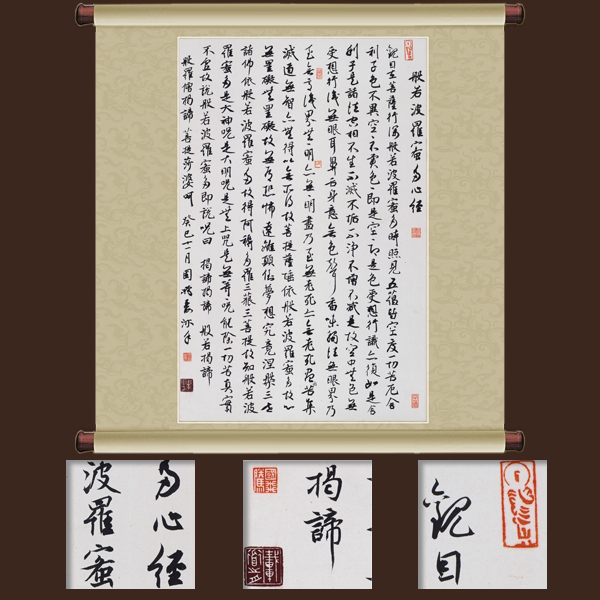 般若波羅蜜多心经
觀自在菩薩行深般若波羅蜜多時照見五蘊皆空度一切苦厄舍
利子色不異空空不異色色即是空空即是色受想行識亦復如是舍
利子是諸法空相不生不滅不垢不淨不增不減是故空中無色無
受想行識無眼耳鼻舌身意無色聲香味觸法無眼界乃
至無意識界無無明亦無無明盡乃至無老死亦無老死盡無苦集
滅道無智亦無得以無所得故菩提薩埵依般若波羅蜜多故心
無罣礙無罣礙故無有恐怖遠離顛倒夢想究竟涅槃三世
諸佛依般若波羅蜜多故得阿耨多羅三藐三菩提故知般若波
羅蜜多是大神咒是大明咒是無上咒是無等等咒能除一切苦真實
不虛故說般若波羅蜜多即說咒曰 揭諦揭諦 般若揭諦
般羅僧揭諦 菩提莎婆呵 癸巳十一月
多心经
波羅蜜
揭諦
觀自